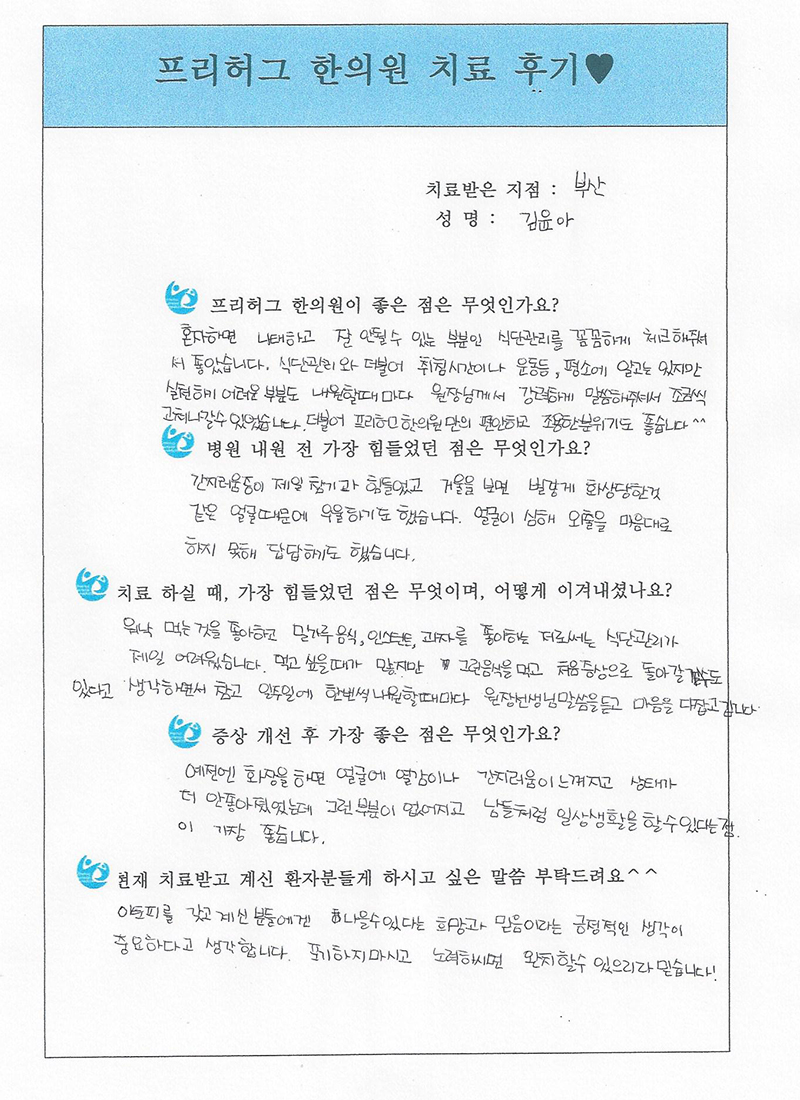 프리허그 한의원 치료 후기♥
치료받은 지점 : 부산
성 명 : 김윤아
프리허그 한의원이 좋은 점은 무엇인가요?
혼자하면 나태하고 잘 안될수 있는 부분인 식단관리를 꼼꼼하게 체크해주셔
서 좋았습니다. 식단관리와 더불어 취침시간이나 운동등, 평소에 알고는 있지만
실천하기 어려운 부분도 내원할때마다 원장님께서 강력하게 말씀해주셔서 조금씩
고쳐나갈수있었습니다. 더불어 프리허그한의원만의 편안하고 조용한분위기도 좋습니다^^
병원 내원 전 가장 힘들었던 점은 무엇인가요?
간지러움증이 제일 참기가 힘들었고 거울을 보면 빨갛게 화상당한것
같은 얼굴때문에 우울하기도 했습니다. 얼굴이 심해 외출을 마음대로
하지 못해 답답하기도 했습니다.
치료 하실 때, 가장 힘들었던 점은 무엇이며, 어떻게 이겨내셨나요?
워낙 먹는것을 좋아하고 밀가루음식, 인스턴트, 과자를 좋아하는 저로써는 식단관리가
제일 어려웠습니다. 먹고싶을때가 많지만 그런음식을 먹고 처음증상으로 돌아갈수도
있다고 생각하면서 참고 일주일에 한번씩 내원할때마다 원장선생님말씀을듣고 마음을 다잡고갑니다
증상 개선 후 가장 좋은 점은 무엇인가요?
예전엔 화장을하면 얼굴에 열감이나 간지러움이느껴지고 상태가
더 안좋아졌었는데 그런부분이 없어지고 남들처럼 일상생활을 할수있다는점
이 가장 좋습니다.
현재 치료받고 계신 환자분들게 하시고 싶은 말씀 부탁드려요^^
아토피를 갖고계신 분들에겐 나을수있다는 희망과 믿음이라는 긍정적인 생각이
중요하다고 생각합니다. 포기하지마시고 노력하시면 완치할수 있으리라 믿습니다!